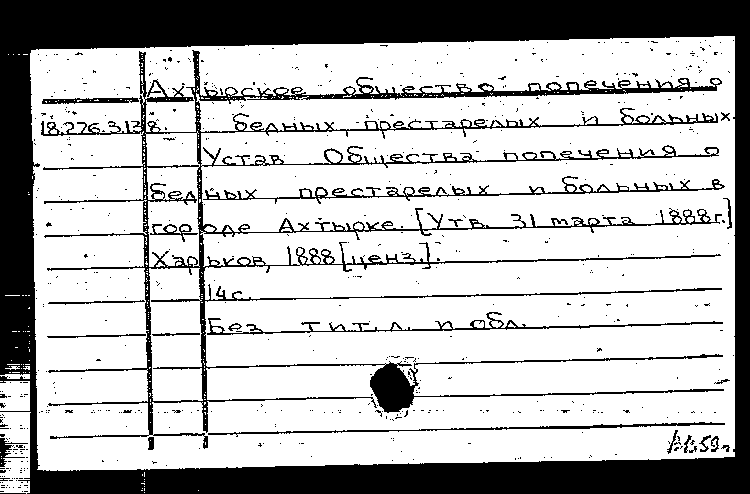 Ахтырское общество попечения о
18.276.3.138. бедных, престарелых и больных.
Устав Общества попечения о
бедных, престарелых и больных в
городе Ахтырке. [Утв. 31 марта 1888г.]
Харьков, 1888 [ценз.].
14с.
Без тит. л. и обл.